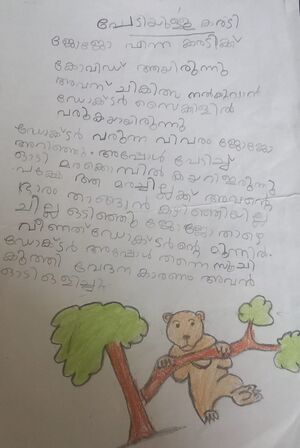 പേടിയുള്ള കരടി
ജോജോ എന്ന കരടിക്ക്
കോവിഡ് ആയിരുന്നു
അവന് ചികിത്സ നൽകുവാൻ
ഡോക്ടർ സൈക്കിളിൽ
വരുകയായിരുന്നു
ഡോക്ടർ വരുന്ന വിവരം ജോജോ
അറിഞ്ഞു. അപ്പോൾ പേടിച്ച്
ഓടി മരക്കൊമ്പിൽ കയറിഇരുന്നു
പക്ഷേ ആ മരച്ചില്ലക്ക് അവന്റെ
ഭാരം താങ്ങുവാൻ കഴിഞ്ഞില്ല
ചില്ല ഒടിഞ്ഞു ജോജോ താഴെ
വീണത് ഡോക്ടർന്റെ മുന്നിൽ.
ഡോക്ടർ അപ്പോൾ തന്നെ സൂചി
കുത്തി വേദന കാരണം അവൻ
ഓടി ഒളിച്ചു.